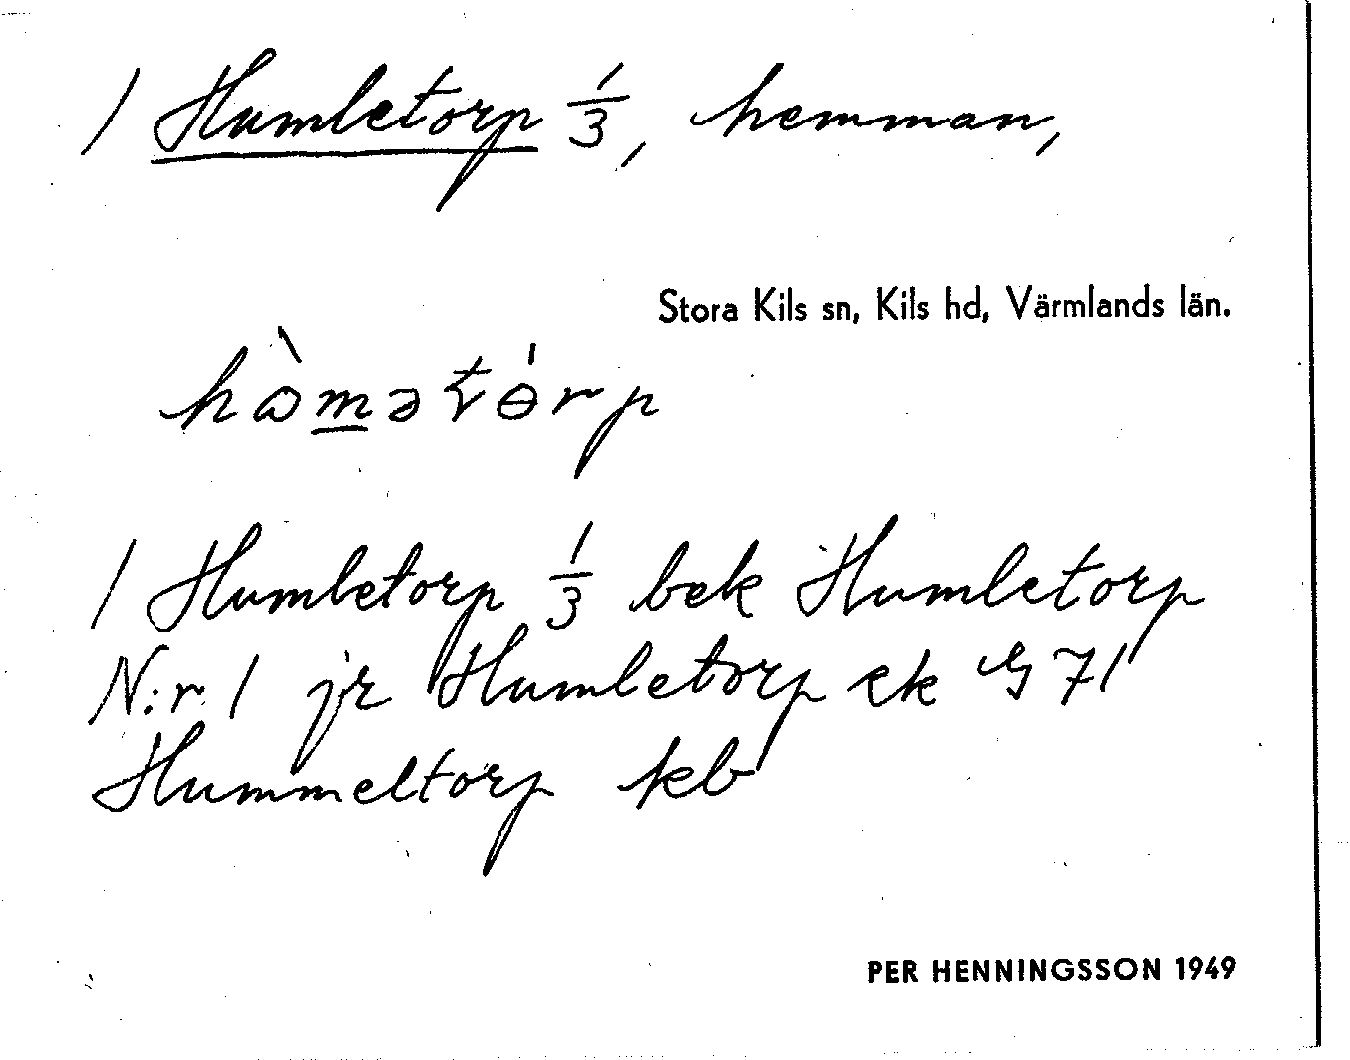 1 Humletorp 1/3, hemman,
Stora Kils sn, Kils hd, Värmlands län.
1 Humletorp 1/3 bek Humletorp
N:r 1 jr Humletorp ek G 71
Hummeltorp kb
PER HENNINGSSON 1949